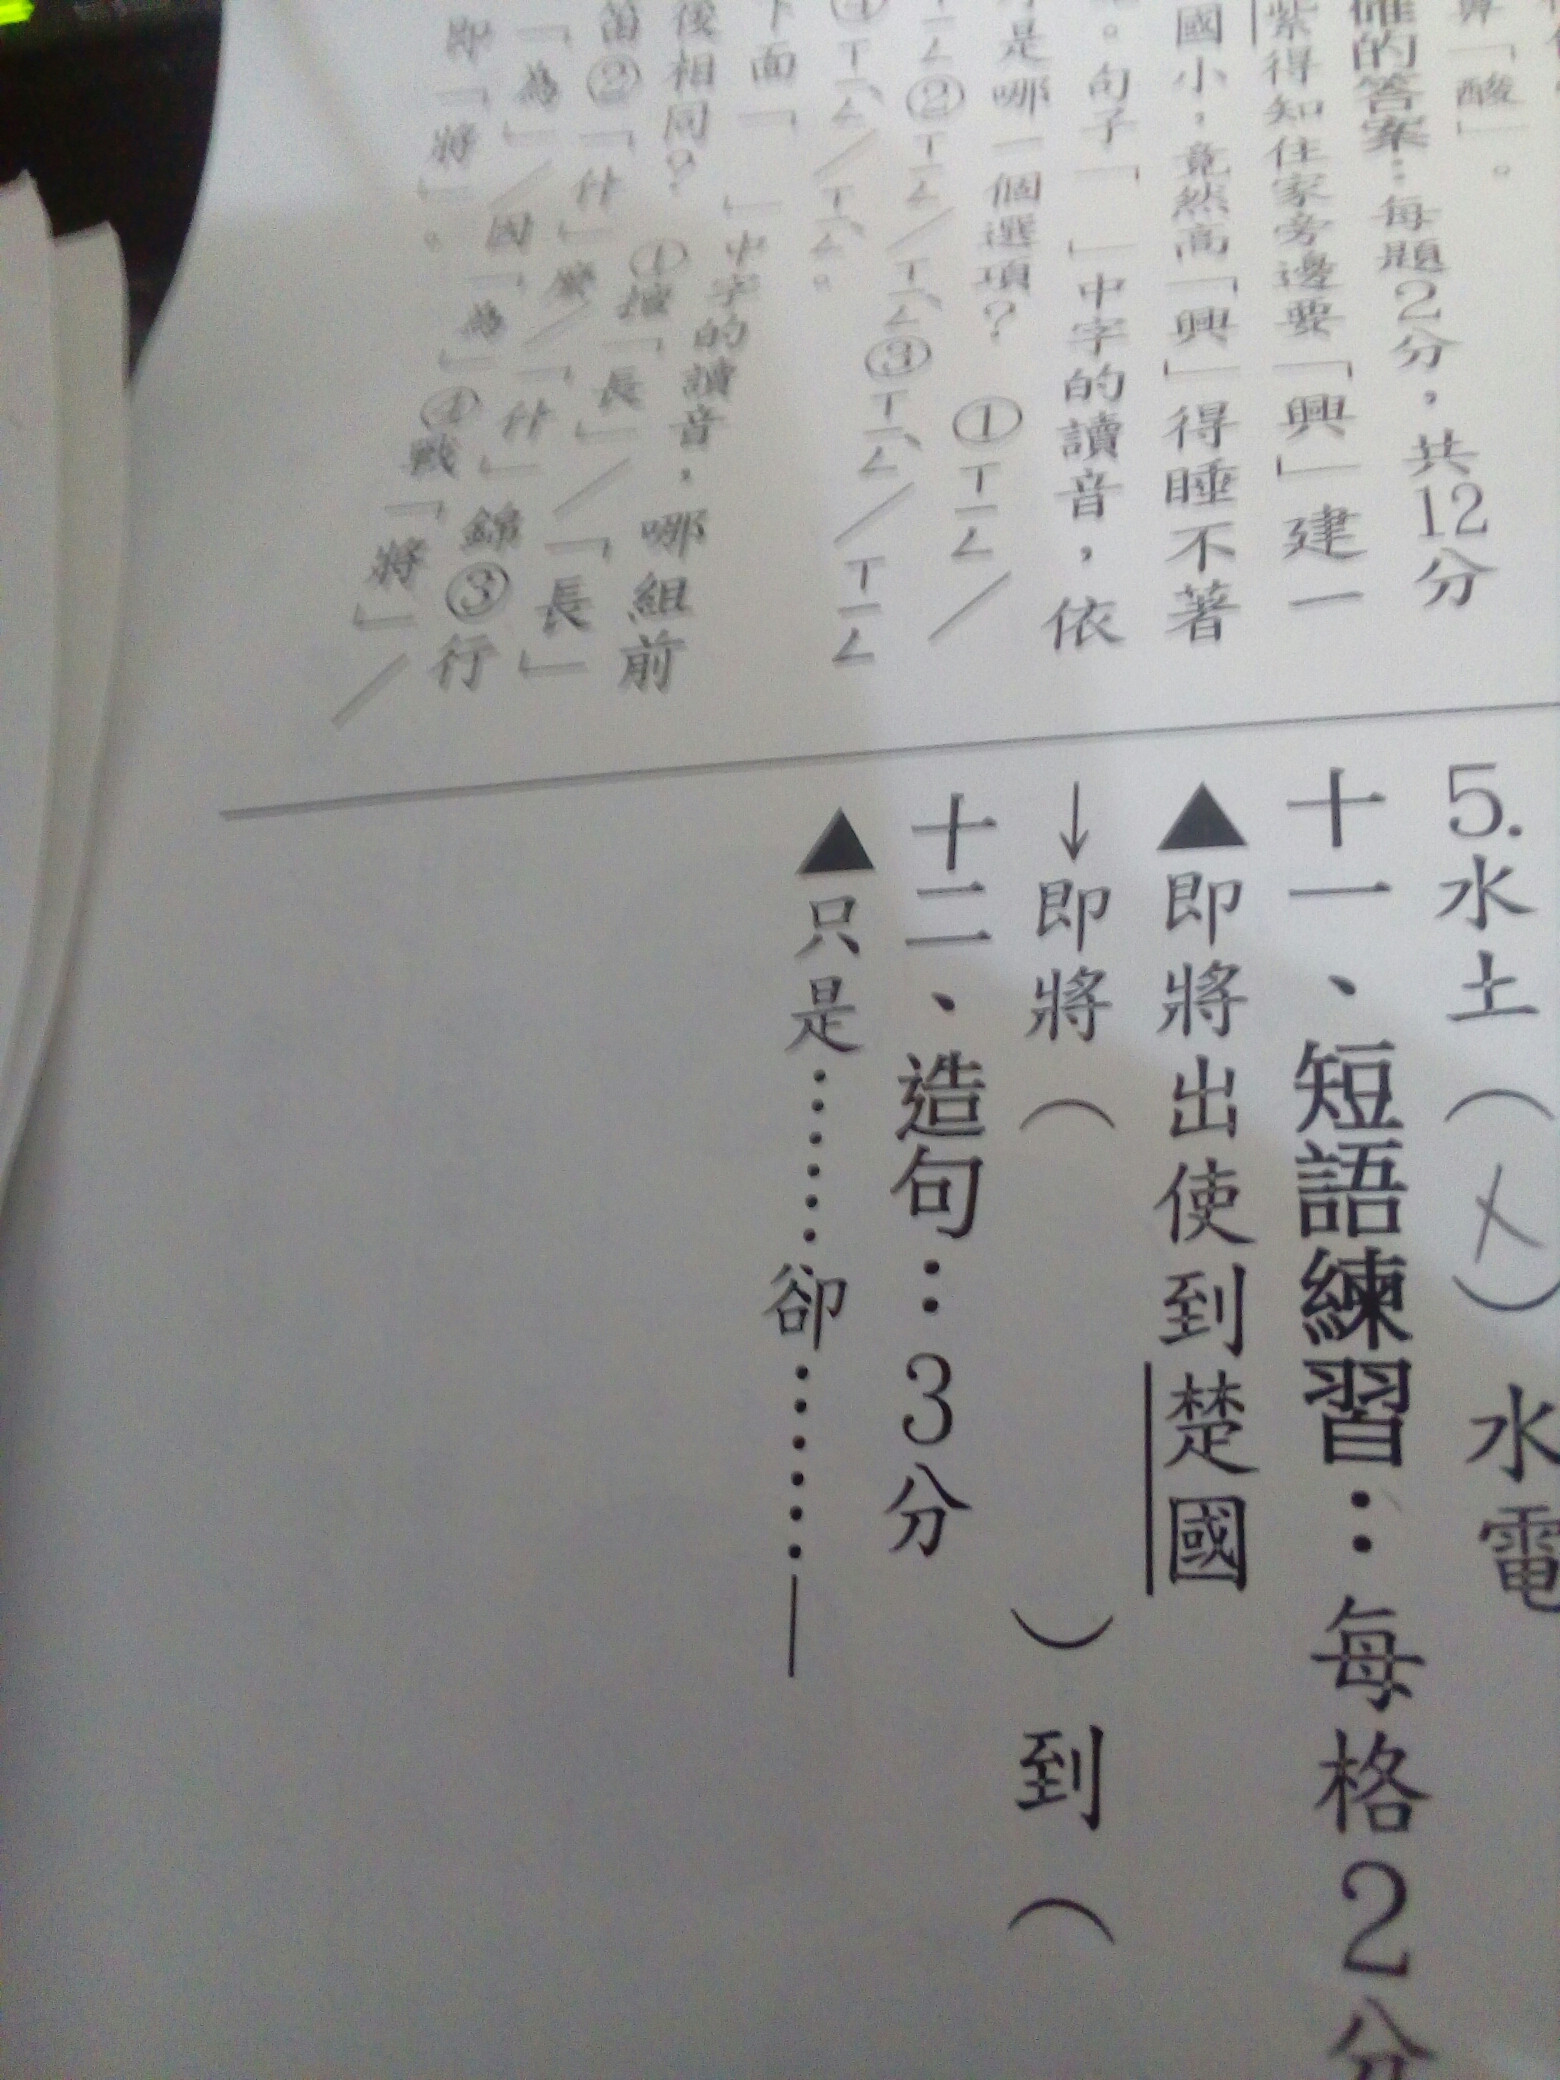 算「酸」。
確的答案：每題2分，共12分
紫得知住家旁邊要「興」建一
國小，竟然高「興」得睡不著
。句子「　」中字的讀音，依
是哪一個選項？　①ㄒㄧㄥ／
ㄒㄧㄥˋ③ㄒㄧㄥˋ／ㄒㄧㄥ
④ㄒㄧㄥˋ／ㄒㄧㄥˋ。
下面「　」中字的讀音，哪組前
後相同？　①擅「長」／「長」
笛②「什」麼／「什」錦③行
「為」／因「為」④戰「將」／
即「將」。
5.水土（ㄨ）水電
十一、短語練習：每格2分
▲即將出使到楚國
↓即將（　　　）到（
十二、造句：3分
▲只是……卻……—